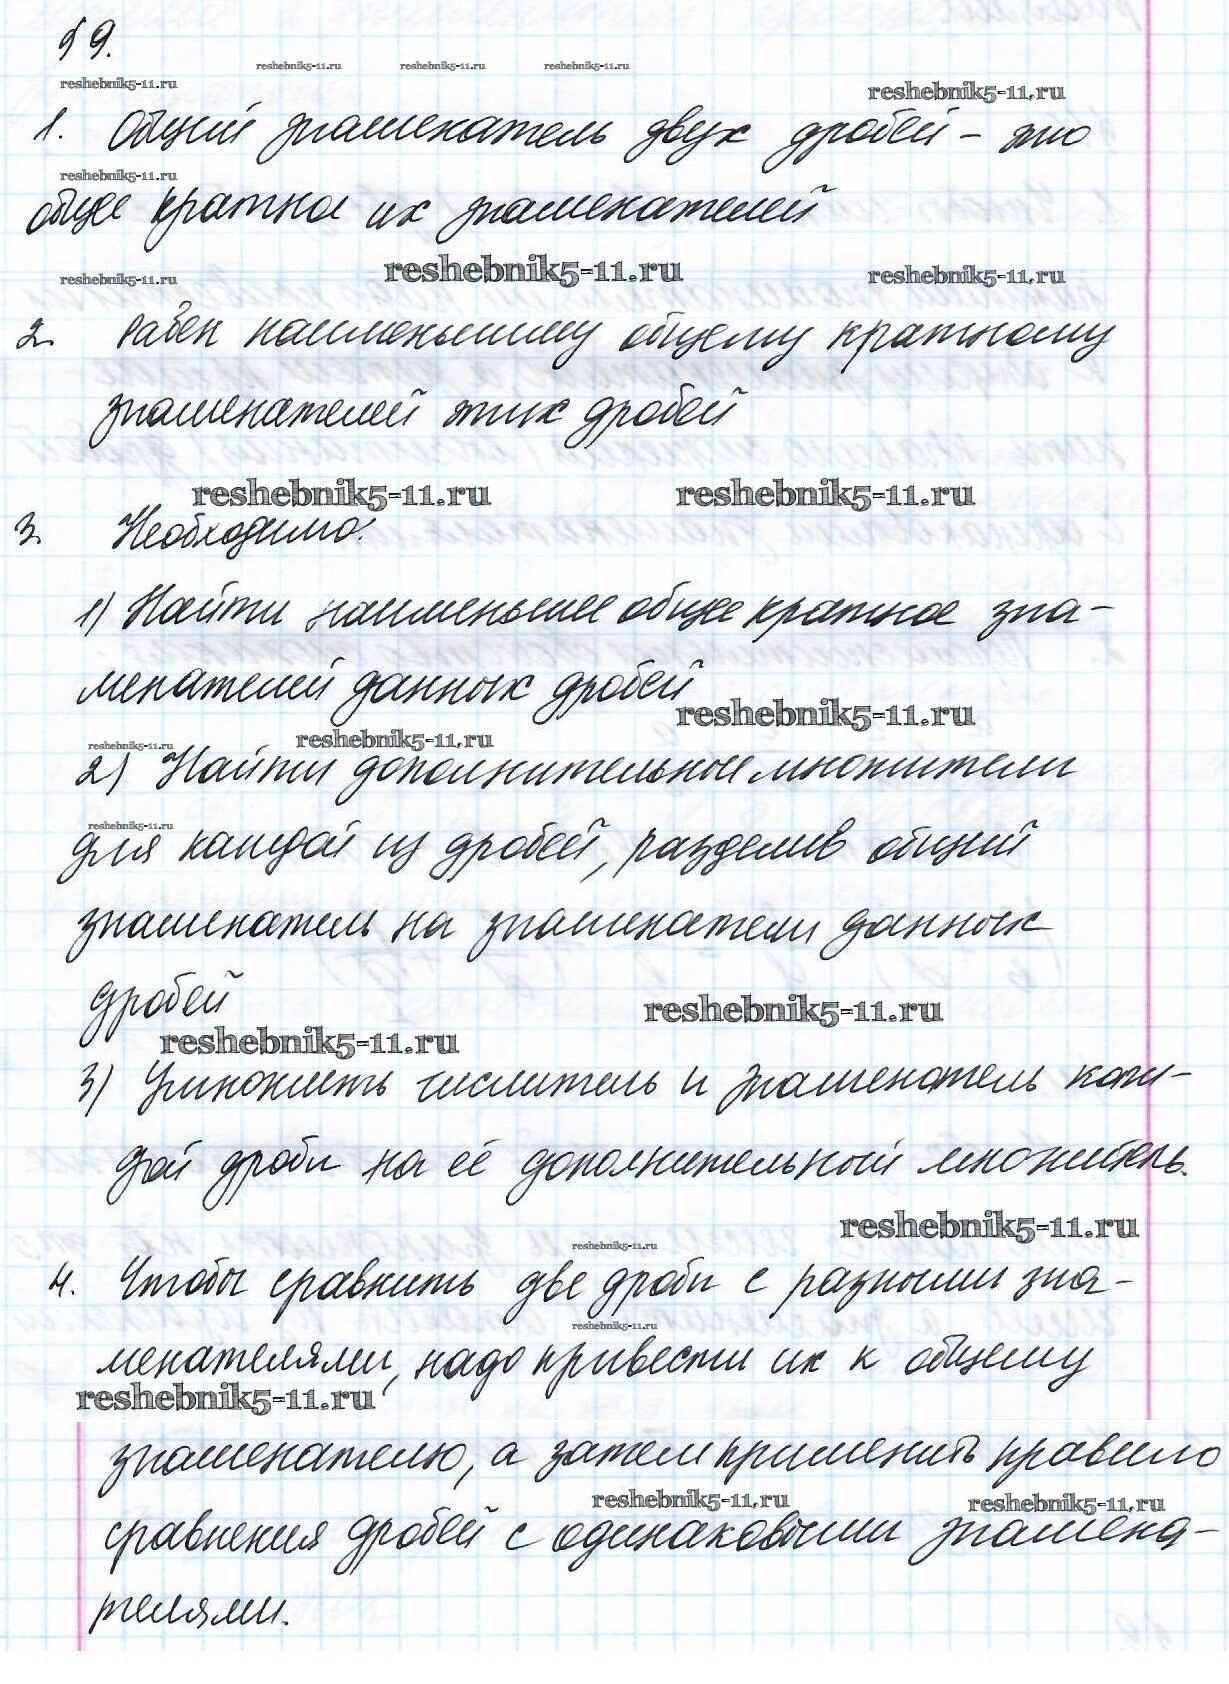 §9.
reshebnik5-11.ru reshebnik5-11.ru reshebnik5-11.ru
reshebnik5-11.ru reshebnik5-11.ru
1. Общий знаменатель двух дробей – это
reshebnik5-11.ru
общее кратное их знаменателей
reshebnik5-11.ru reshebnik5-11.ru reshebnik5-11.ru
2. Равен наименьшему общему кратному
знаменателей этих дробей
reshebnik5-11.ru reshebnik5-11.ru
3. Необходимо:
1) Найти наименьшее общее кратное зна-
менателей данных дробей
reshebnik5-11.ru
reshebnik5-11.ru reshebnik5-11.ru
2) Найти дополнительные множители
reshebnik5-11.ru
для каждой из дробей, разделив общий
знаменатель на знаменатели данных
дробей
reshebnik5-11.ru
reshebnik5-11.ru
3) Умножить числитель и знаменатель каж-
дой дроби на её дополнительный множитель.
reshebnik5-11.ru
reshebnik5-11.ru
4. Чтобы сравнить две дроби с разными зна-
reshebnik5-11.ru
менателями, надо привести их к общему
reshebnik5-11.ru
знаменателю, а затем применить правило
reshebnik5-11.ru reshebnik5-11.ru
сравнения дробей с одинаковыми знамена-
телями.